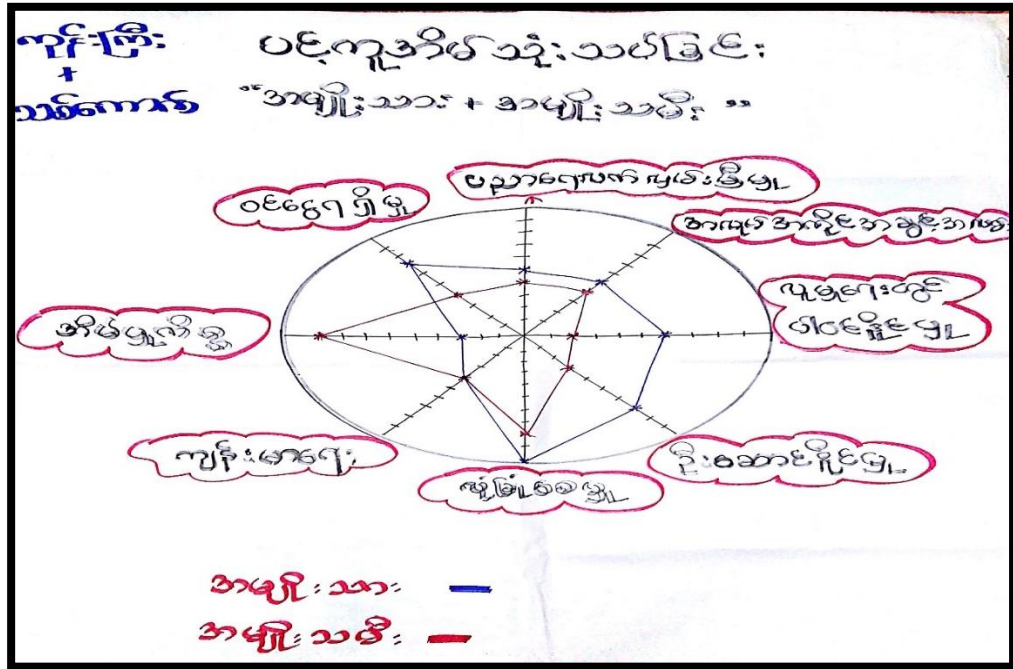 ကုန်းကြီး
+
သစ်ကောက်
ပင့်ကူအိမ်သုံးသပ်ခြင်း
"အမျိုးသား + အမျိုးသမီး"
ပညာရေးလက်လှမ်းမှီမှု
ဝင်ငွေရရှိမှု
အလုပ်အကိုင်အခွင့်အလမ်း
လူမှုရေးတွင်
ပါဝင်နိုင်မှု
အိမ်မှုကိစ္စ
ကျန်းမာရေး
ဦးဆောင်နိုင်မှု
လုံခြုံစေမှု
အမျိုးသား
အမျိုးသမီး